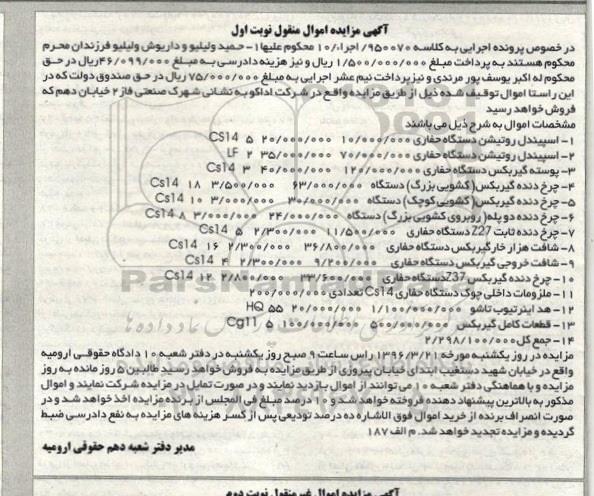 آگهی مزایده اموال منقول نوبت اول
در خصوص پرونده اجرایی به کلاسه ۹۵۰۰۷۰/اجراء/۱۰ محکوم علیها۱- حمید ولیلیو و داریوش ولیلیو فرزندان محرم
محکوم هستند به پرداخت مبلغ ۱/۵۰۰/۰۰۰/۰۰۰ ریال و نیز هزینه دادرسی به مبلغ ۴۶/۰۹۹/۰۰۰ریال در حق
محکوم له اکبر یوسف پور مرندی و نیز پرداخت نیم عشر اجرایی به مبلغ ۷۵/۰۰۰/۰۰۰ ریال در حق صندوق دولت که در
این راستا اموال توقیف شده ذیل از طریق مزایده واقع در شرکت اداکو به نشانی شهرک صنعتی فاز۲ خیابان دهم که
فروش خواهد رسید
مشخصات اموال به شرح ذیل می باشند
۱- اسپیندل روتیشن دستگاه حفاری ۱۰/۰۰۰/۰۰۰ ۲۰/۰۰۰/۰۰۰ ۵ Cs14
۲- اسپیندل روتیشن دستگاه حفاری ۷۰/۰۰۰/۰۰۰ ۳۵/۰۰۰/۰۰۰ ۲ LF
۳- پوسته گیربکس دستگاه حفاری ۱۲۰/۰۰۰/۰۰۰ ۴۰/۰۰۰/۰۰۰ ۳ Cs14
۴- چرخ دنده گیربکس(کشویی بزرگ) دستگاه ۶۳/۰۰۰/۰۰۰ ۳/۵۰۰/۰۰۰ ۱۸ Cs14
۵- چرخ دنده گیربکس(کشویی کوچک) دستگاه ۳۰/۰۰۰/۰۰۰ ۳/۰۰۰/۰۰۰ ۱۰ Cs14
۶- چرخ دنده دو پله(روبروی کشویی بزرگ) دستگاه ۲۴/۰۰۰/۰۰۰ ۳/۰۰۰/۰۰۰ ۸ Cs14
۷- چرخ دنده ثابت Z27 دستگاه حفاری ۱۱/۵۰۰/۰۰۰ ۲/۳۰۰/۰۰۰ ۵ Cs14
۸- شافت هزار خار گیربکس دستگاه حفاری ۳۶/۸۰۰/۰۰۰ ۲/۳۰۰/۰۰۰ ۱۶ Cs14
۹- شافت خروجی گیربکس دستگاه حفاری ۹/۲۰۰/۰۰۰ ۲/۳۰۰/۰۰۰ ۴ Cs14
۱۰- چرخ دنده گیربکس Z37دستگاه حفاری ۳۳/۶۰۰/۰۰۰ ۲/۸۰۰/۰۰۰ ۱۲ Cs14
۱۱- ملزومات داخلی چوک دستگاه حفاری Cs14 تعدادی ۲۰۰/۰۰۰/۰۰۰
۱۲- هد اینرتیوب تاشو ۱/۱۰۰/۰۰۰/۰۰۰ ۲۰/۰۰۰/۰۰۰ ۵۵ HQ
۱۳- قطعات کامل گیربکس ۵۰۰/۰۰۰/۰۰۰ ۱۰۰/۰۰۰/۰۰۰ ۵ Cg11
۱۴- جمع کل۲/۲۹۸/۱۰۰/۰۰۰
مزایده در روز یکشنبه مورخه ۱۳۹۶/۳/۲۱ راس ساعت ۹ صبح روز یکشنبه در دفتر شعبه ۱۰ دادگاه حقوقی ارومیه
واقع در خیابان شهید دستغیب ابتدای خیابان پیروزی از طریق مزایده به فروش خواهد رسید طالبین ۵ روز مانده به روز
مزایده و با هماهنگی دفتر شعبه ۱۰ می توانند از اموال بازدید نمایند و در صورت تمایل در مزایده شرکت نمایند و اموال
مذکور به بالاترین پیشنهاد دهنده فروخته خواهد شد و ۱۰ درصد مبلغ فی المجلس از برنده مزایده اخذ خواهد شد و در
صورت انصراف برنده از خرید اموال فوق الاشاره ده درصد تودیعی پس از کسر هزینه های مزایده به نفع دادرسی ضبط
گردیده و مزایده تجدید خواهد شد. م الف ۱۸۷
مدیر دفتر شعبه دهم حقوقی ارومیه
آگهی مزایده اموال غیر منقول نوبت دوم